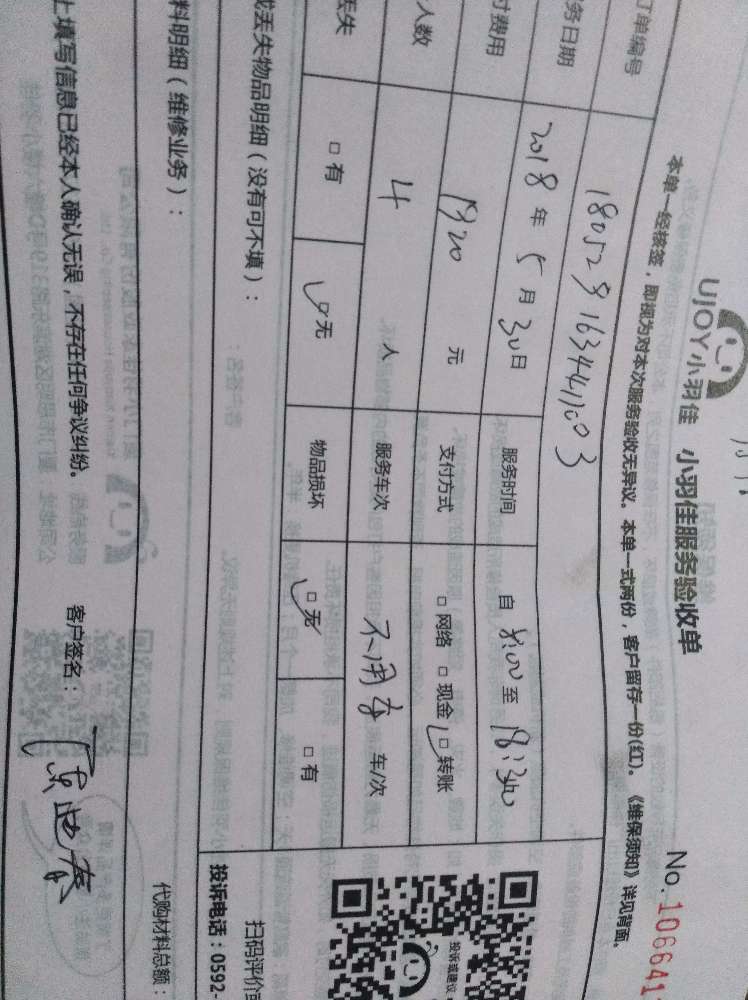 UJOY小羽佳 小羽佳服务验收单 No.106641
本单一经核签，即视为对本次服务验收无异议。本单一式两份，客户留存一份(红)。《维保须知》详见背面。
订单编号 18052916344411003
务日期 2018年5月30日 服务时间 自 8:00 至 18:30
付费用 1920 元 支付方式 □网络 □现金 □转账
人数 4 人 服务车次 不用车 车/次
丢失 □有 □无 物品损坏 □无 □有
或丢失物品明细（没有可不填）：
料明细（维修业务）：
代购材料总额：
上填写信息已经本人确认无误，不存在任何争议纠纷。 客户签名：
投诉或建议
扫码评价或
投诉电话：0592-